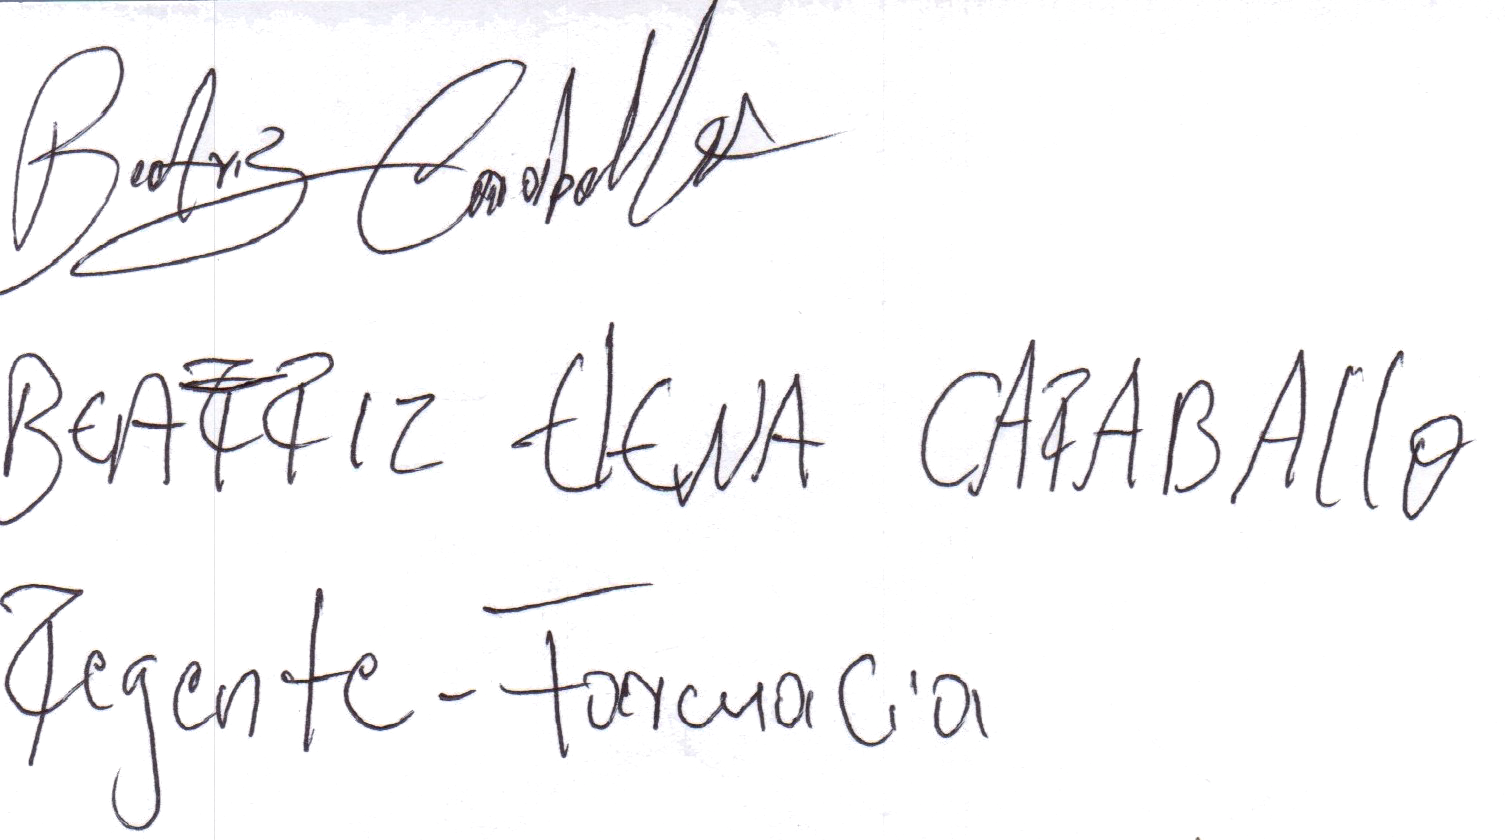 Beatriz Caraballo
BEATRIZ ElENA CARABAllO
Regente - Farmacia